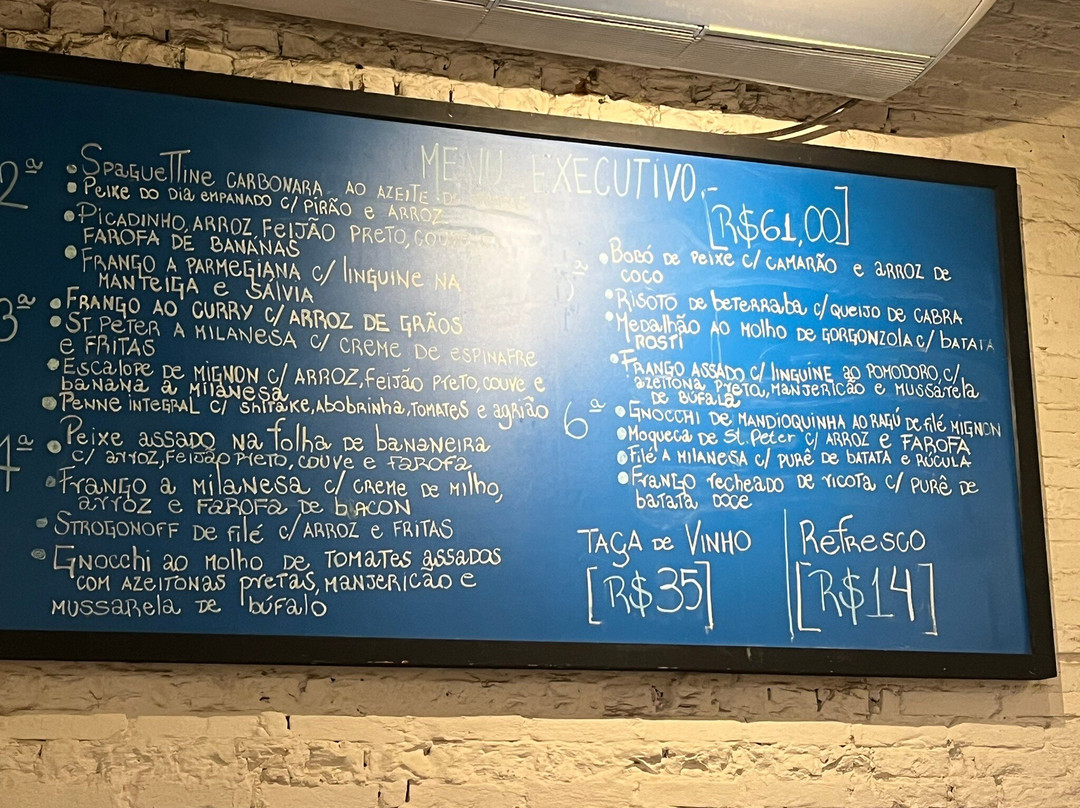 MENU EXECUTIVO
[R$61,00]
2ª
• SPAGUETTINE CARBONARA AO AZEITE
• PEIXE DO DIA EMPANADO C/ PIRÃO E ARROZ
• PICADINHO, ARROZ, FEIJÃO PRETO,
FAROFA DE BANANAS
• FRANGO A PARMEGIANA C/ LINGUINE NA
MANTEIGA E SÁLVIA
3ª
• FRANGO AO CURRY C/ ARROZ DE GRÃOS
• ST. PETER A MILANESA C/ CREME DE ESPINAFRE
E FRITAS
• ESCALOPE DE MIGNON C/ ARROZ, FEIJÃO PRETO, COUVE E
BANANA À MILANESA
• PENNE INTEGRAL C/ SHITAKE, ABOBRINHA, TOMATES E AGRIÃO
4ª
• PEIXE ASSADO NA FOLHA DE BANANEIRA
C/ ARROZ, FEIJÃO PRETO, COUVE E FAROFA
• FRANGO A MILANESA C/ CREME DE MILHO,
ARROZ E FAROFA DE BACON
• STROGONOFF DE FILÉ C/ ARROZ E FRITAS
• GNOCCHI AO MOLHO DE TOMATES ASSADOS
COM AZEITONAS PRETAS, MANJERICÃO E
MUSSARELA DE BÚFALO
• BOBÓ DE PEIXE C/ CAMARÃO E ARROZ DE
COCO
• RISOTO DE BETERRABA C/ QUEIJO DE CABRA
• MEDALHÃO AO MOLHO DE GORGONZOLA C/ BATATA
ROSTI
• FRANGO ASSADO C/ LINGUINE AO POMODORO, C/
AZEITONA PRETO, MANJERICÃO E MUSSARELA
DE BÚFALA
6ª
• GNOCCHI DE MANDIOQUINHA AO RAGÚ DE FILÉ MIGNON
• MOQUECA DE ST. PETER C/ ARROZ E FAROFA
• FILÉ À MILANESA C/ PURÊ DE BATATA E RÚCULA
• FRANGO RECHEADO DE RICOTA C/ PURÊ DE
BATATA DOCE
TAÇA DE VINHO
[R$35]
REFRESCO
[R$14]